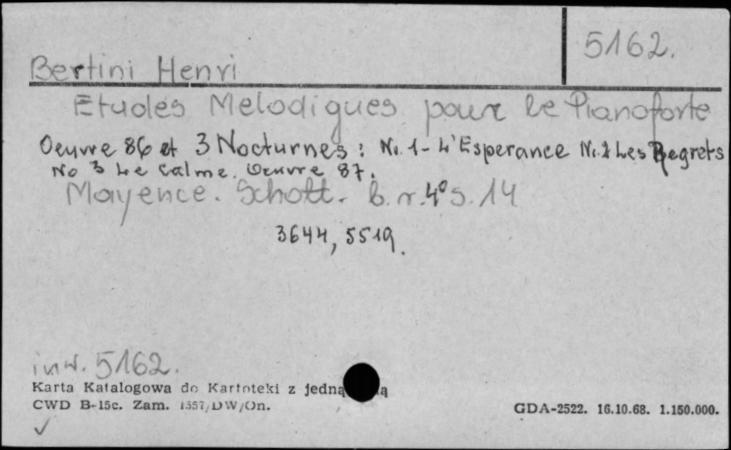 5162.
Bertini Henri
Etudes Melodigues pour le Pianoforte
Oeuvre 86 et 3 Nocturnes: No. 1 - L'Esperance No. 2 Les Regrets
No 3 Le Calme. Oeuvre 87.
Mayence. Schott. b. r. 4° s. 14
3644, 5519.
inw. 5162.
Karta Katalogowa do Kartoteki z jedną
CWD B-15c. Zam. 1557/DW/On.
GDA-2522. 16.10.68. 1.150.000.